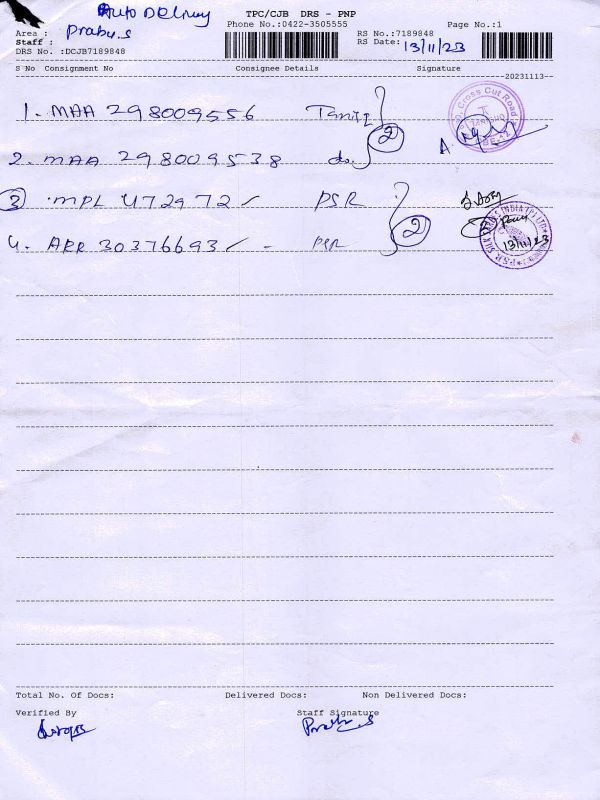 Auto Delivey
TPC/CJB DRS - PNP
Phone No.:0422-3505555
Page No.:1
Area : Prabu.s
RS No.:7189848
Staff :
RS Date: 13/11/23
DRS No. :DCJB7189848
S No Consignment No Consignee Details Signature
20231113
1. MAA 298009556
2
Cross Cut Road
2. MAA 298009538 do
3 MPL 472972 / PSR
2
13/11/23
4. ARR 30376693 / - PSR
Total No. Of Docs: Delivered Docs: Non Delivered Docs:
Verified By Staff Signature